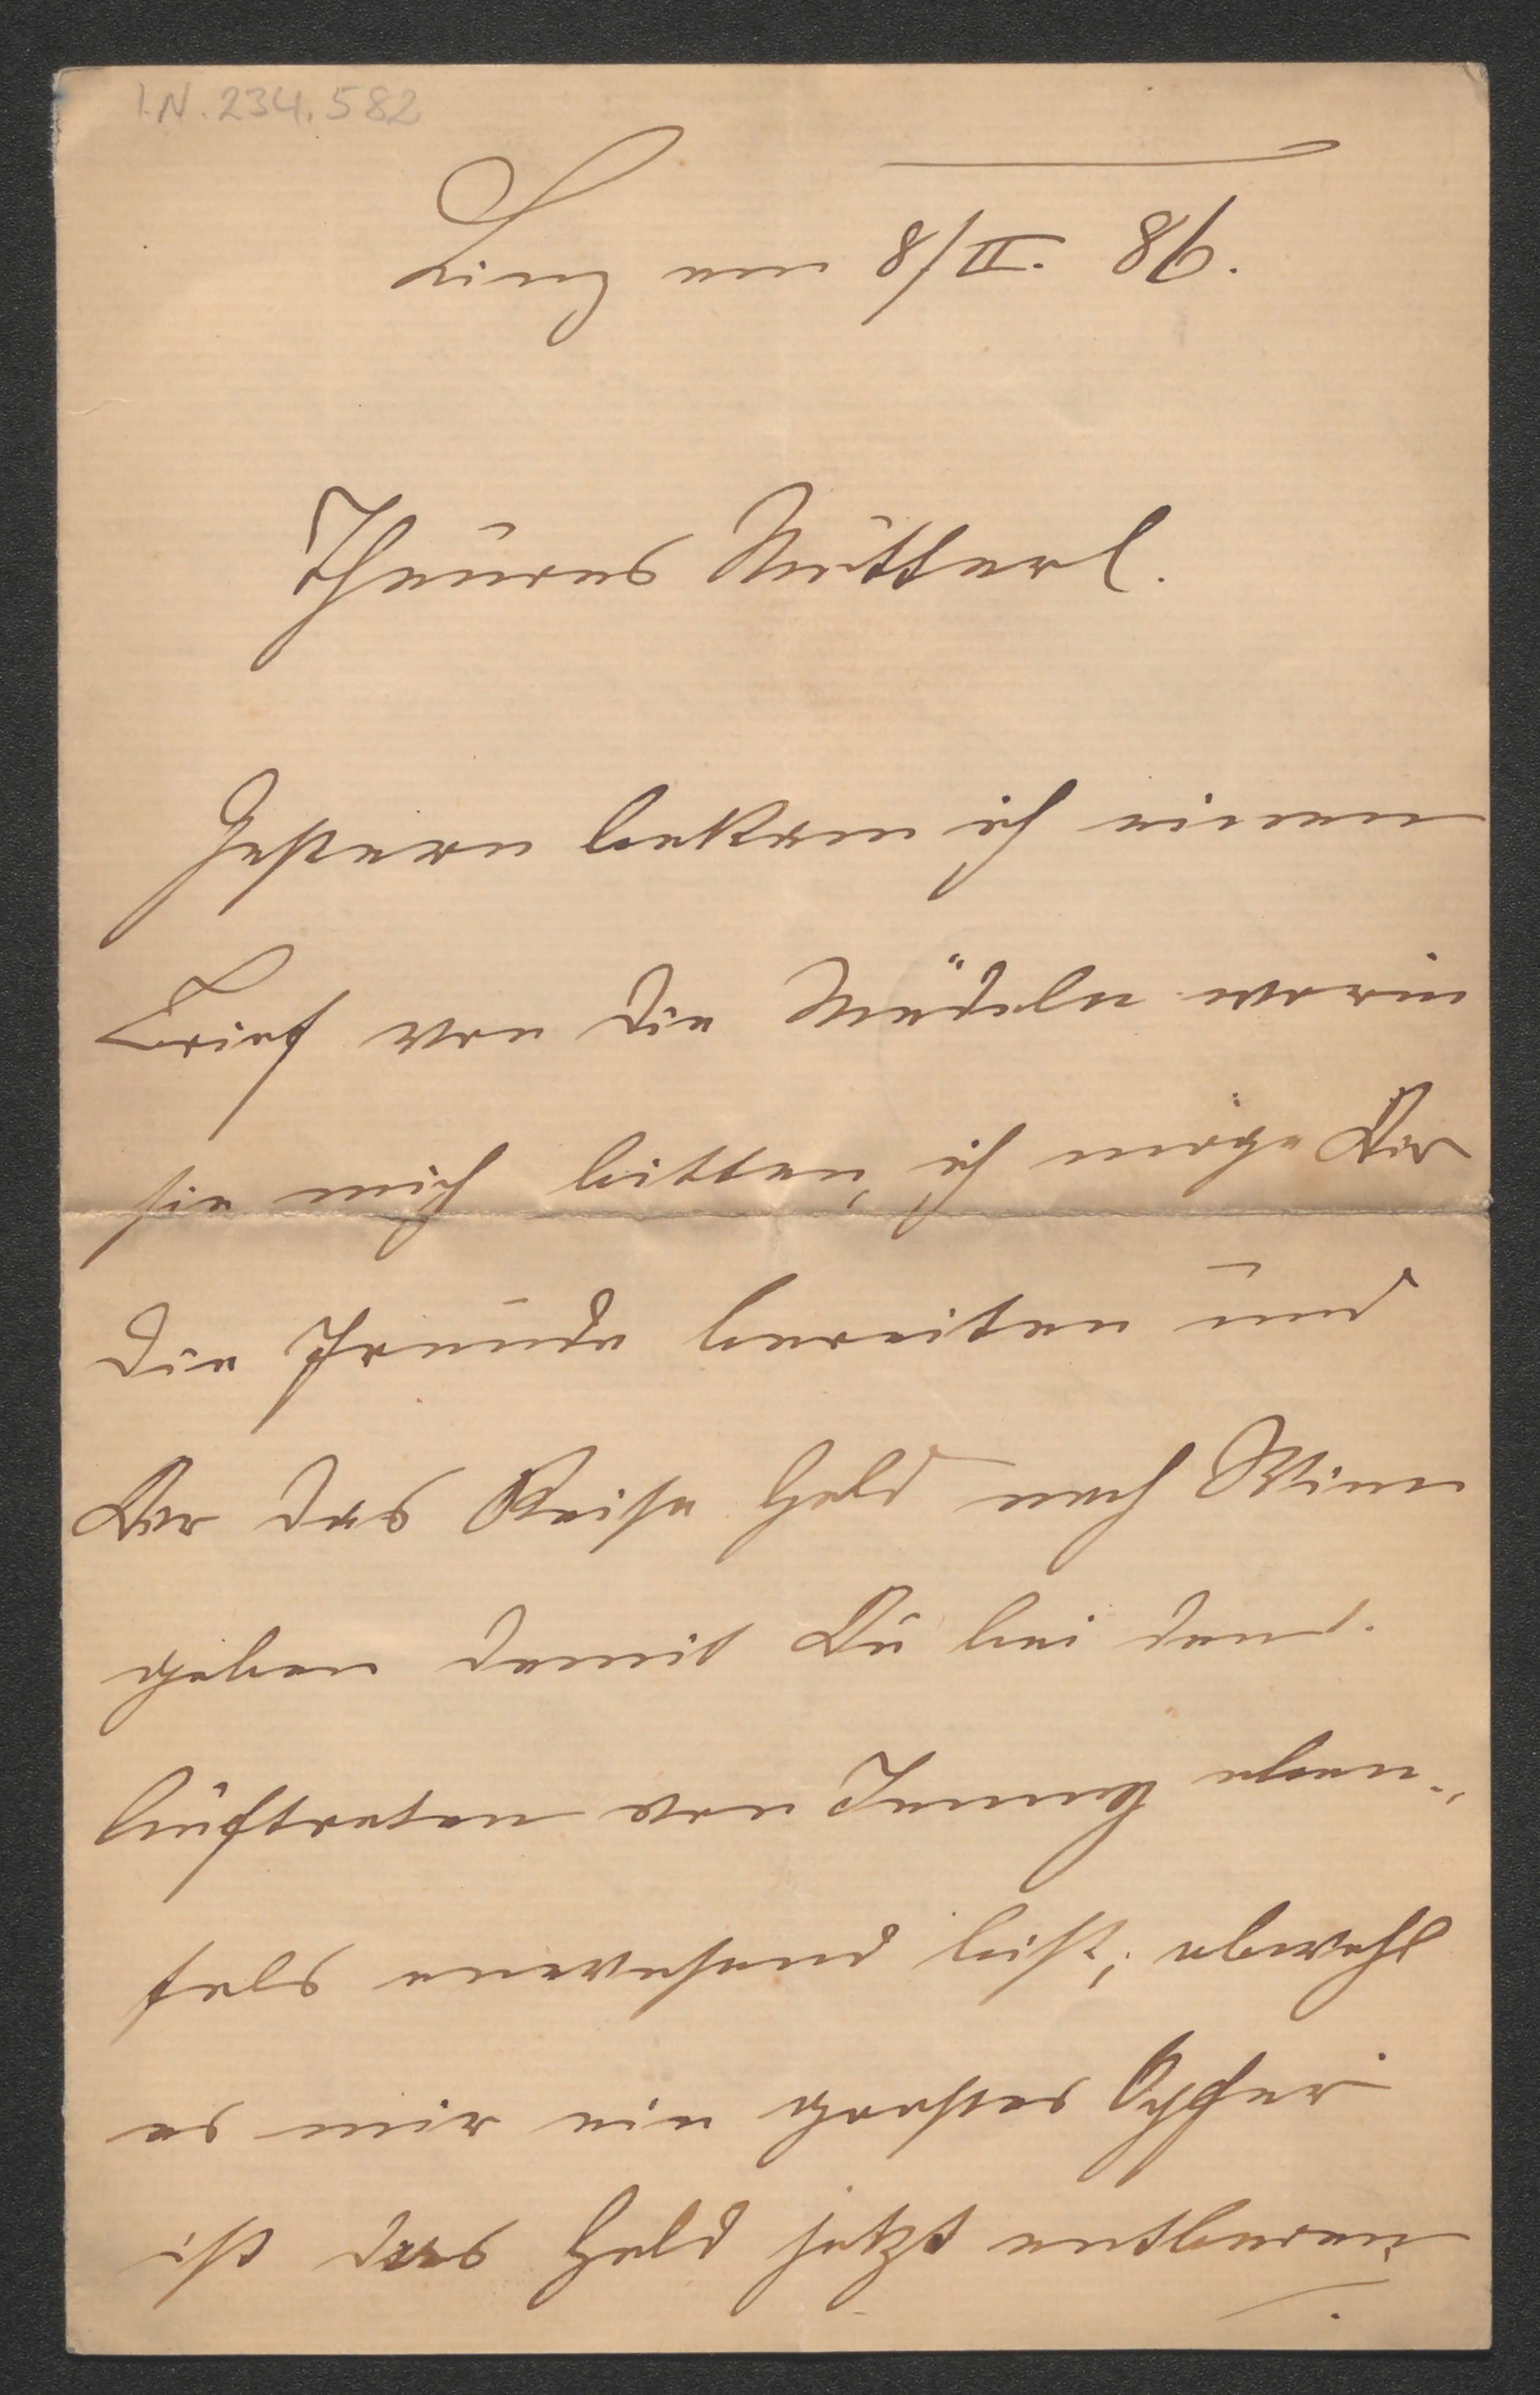 I.N. 234.582
Linz am 8/II. 86.
Theures Mutterl.
Gestern bekam ich einen
Brief von die Mädeln worin
sie mich bitten, ich möge Dir
die Freude bereiten und
Dir das Reise Geld nach Wien
geben damit Du bei dem
Auftreten von Jenny eben-
fals anwesend bist; obwohl
es mir ein grosses Opfer
ist das Geld jetzt entberen